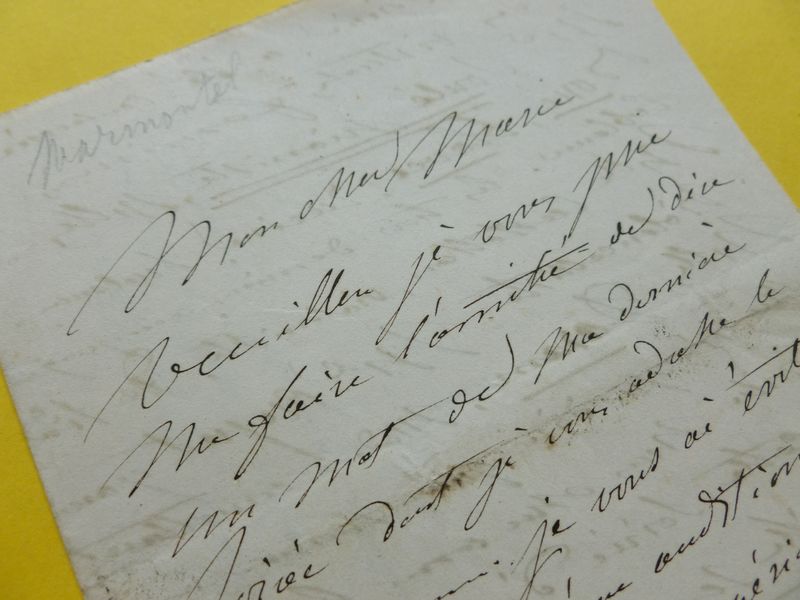 Marmontel
Mon cher Marie
Veuillez je vous prie
me faire l'amitié de dire
un mot de ma dernière
soirée dont je vous adresse le
je vous ai évit
audition